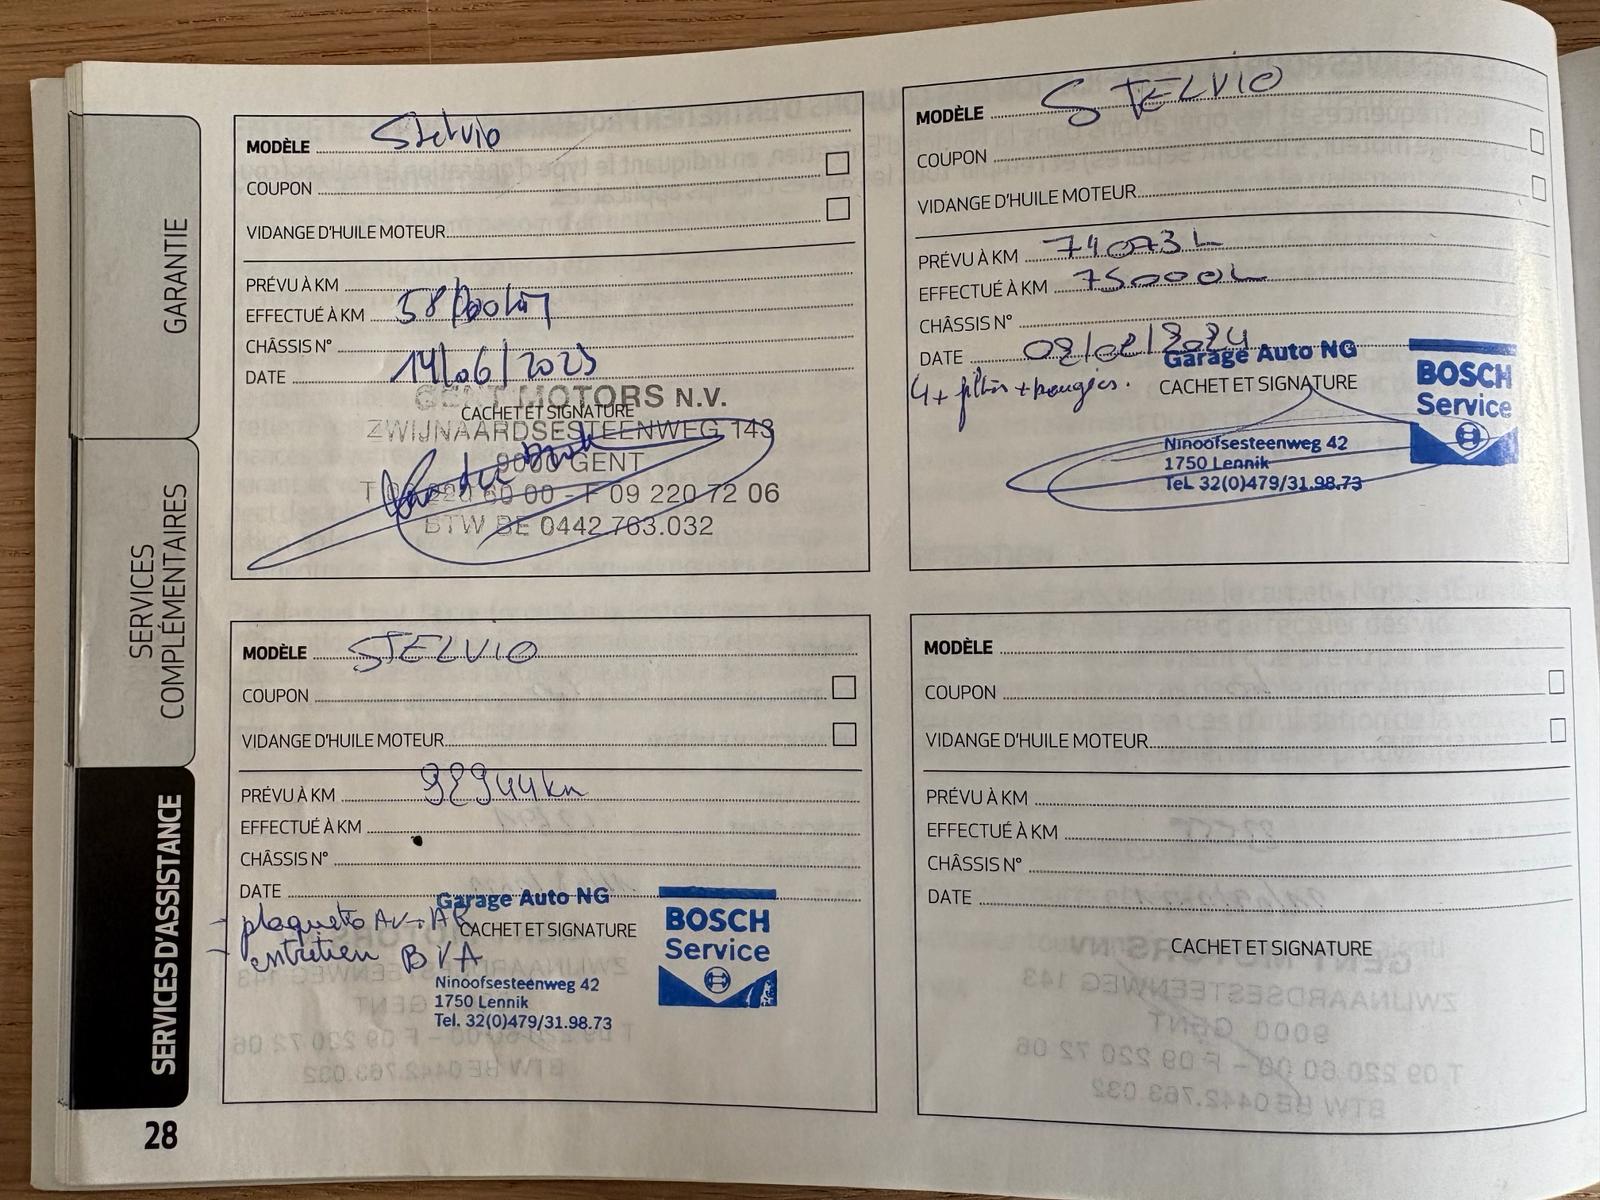 GARANTIE
SERVICES
COMPLÉMENTAIRES
SERVICES D'ASSISTANCE
28
MODÈLE Stelvio
COUPON
VIDANGE D'HUILE MOTEUR
PRÉVU À KM
EFFECTUÉ À KM 58000km
CHÂSSIS N°
DATE 14/06/2023
GENT MOTORS N.V.
CACHET ET SIGNATURE
ZWIJNAARDSESTEENWEG 143
9000 GENT
T 09 220 60 00 - F 09 220 72 06
BTW BE 0442.763.032
MODÈLE STELVIO
COUPON
VIDANGE D'HUILE MOTEUR
PRÉVU À KM 74073
EFFECTUÉ À KM 75000
CHÂSSIS N°
DATE 2024
4 filtres + bougies.
Garage Auto NG
CACHET ET SIGNATURE
Ninoofsesteenweg 42
1750 Lennik
Tel. 32(0)479/31.98.73
BOSCH
Service
MODÈLE STELVIO
COUPON
VIDANGE D'HUILE MOTEUR
PRÉVU À KM 92944km
EFFECTUÉ À KM
CHÂSSIS N°
DATE
- plaquette AV + AR
- entretien BVA
Garage Auto NG
CACHET ET SIGNATURE
Ninoofsesteenweg 42
1750 Lennik
Tel. 32(0)479/31.98.73
BOSCH
Service
MODÈLE
COUPON
VIDANGE D'HUILE MOTEUR
PRÉVU À KM
EFFECTUÉ À KM
CHÂSSIS N°
DATE
CACHET ET SIGNATURE